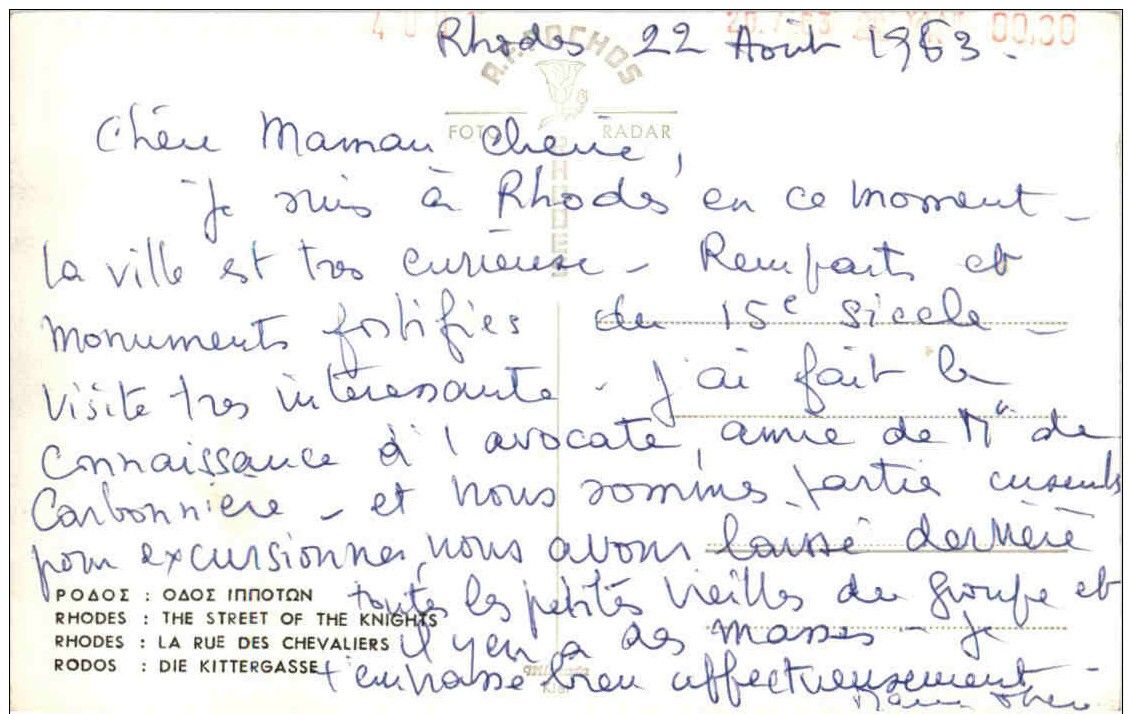 Rhodes 22 Août 1963.
FOTO RADAR
RHODES
Chère Maman cherie,
Je suis à Rhodes en ce moment -
la ville est tres curieuse - Remparts et
monuments fortifiés du 15e siecle -
visite tres interessante - J'ai fait la
connaissance d'1 avocate, amie de Me de
Carbonnière - et nous sommes partie ensemble
pour excursionner, nous avons laissé derrière
toutes les petites vieilles du groupe et
il y en a des masses - Je
t'embrasse bien affectueusement -
ΡΟΔΟΣ : ΟΔΟΣ ΙΠΠΟΤΩΝ
RHODES : THE STREET OF THE KNIGHTS
RHODES : LA RUE DES CHEVALIERS
RODOS : DIE KITTERGASSE